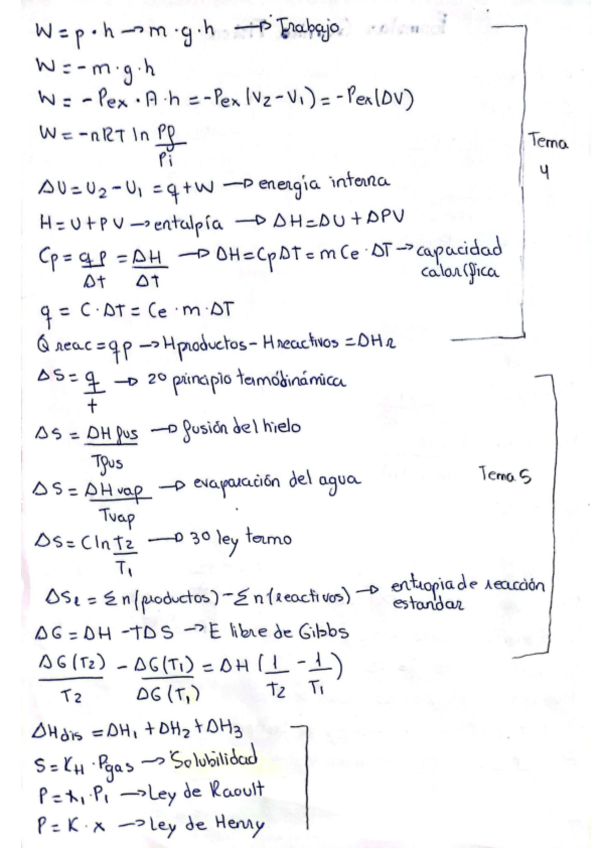 W = p · h → m · g · h → Trabajo
W = - m · g · h
W = - Pex · A · h = - Pex (V2 - V1) = - Pex (ΔV)
W = - nRT ln Pf/Pi
Tema 4
ΔU = U2 - U1 = q + W → energía interna
H = U + PV → entalpía → ΔH = ΔU + ΔPV
Cp = qp/Δt = ΔH/ΔT → ΔH = CpΔT = m Ce · ΔT → capacidad calorífica
q = C · ΔT = Ce · m · ΔT
Q reac = qp → Hproductos - Hreactivos = ΔHr
ΔS = q/t → 2o principio termodinámica
ΔS = ΔH fus/Tfus → fusión del hielo
Tema 5
ΔS = ΔH vap/Tvap → evaporación del agua
ΔS = C ln T2/T1 → 3o ley termo
ΔSr = Σn (productos) - Σn (reactivos) → entropia de reacción estandar
ΔG = ΔH - TΔS → E libre de Gibbs
ΔG(T2)/T2 - ΔG(T1)/ΔG(T1) = ΔH (1/T2 - 1/T1)
ΔHdis = ΔH1 + ΔH2 + ΔH3
S = KH · Pgas → Solubilidad
P = x1 · P1 → Ley de Raoult
P = K · x → Ley de Henry